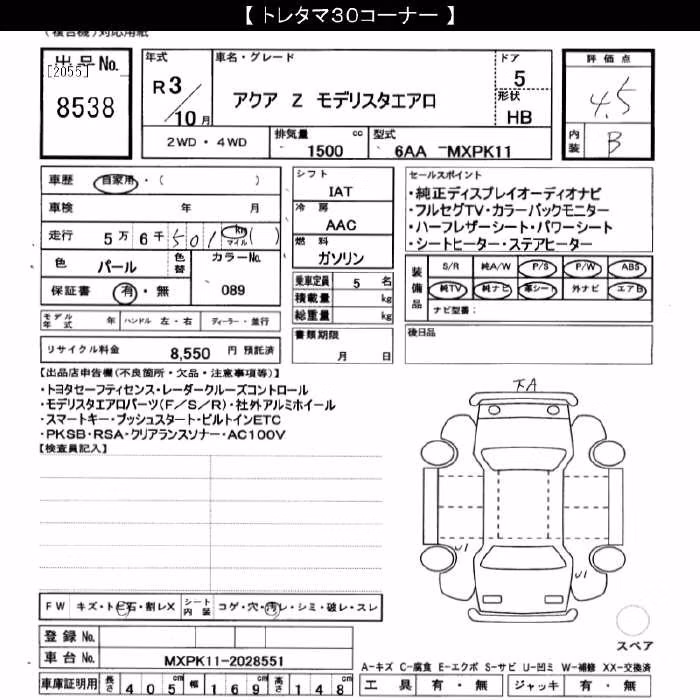 【 トレタマ30コーナー 】
(複合機)対応用紙
出品No.
[2055]
8538
年式
R3/10月
車名・グレード
アクア Z モデリスタエアロ
ドア
5
形状
HB
2WD・4WD
排気量
1500 cc
型式
6AA -MXPK11
評価点
4.5
内装
B
車歴 自家用・( )
車検 年 月
走行 5万6千501 km マイル ( )
色 パール
色替
カラーNo.
089
保証書 有・無
シフト
IAT
冷房
AAC
燃料
ガソリン
乗車定員 5 名
積載量 kg
総重量 kg
書類期限
月 日
セールスポイント
・純正ディスプレイオーディオナビ
・フルセグTV・カラーバックモニター
・ハーフレザーシート・パワーシート
・シートヒーター・ステアヒーター
装備品
S/R 純A/W P/S P/W ABS
純TV 純ナビ 革シート 外ナビ エアB
ナビ型番:
モデル年式 年 ハンドル 左・右 ディーラー・並行
リサイクル料金 8,550 円 預託済
後日品
【出品店申告欄(不良箇所・欠品・注意事項等)】
・トヨタセーフティセンス・レーダークルーズコントロール
・モデリスタエアロパーツ(F/S/R)・社外アルミホイール
・スマートキー・プッシュスタート・ビルトインETC
・PKSB・RSA・クリアランスソナー・AC100V
【検査員記入】
下A
W1
W1
FW キズ・トビ石・割レX
シート内装 コゲ・穴・汚レ・シミ・破レ・スレ
登録No.
車台No. MXPK11-2028551
車庫証明用 長さ 405 cm 幅 169 cm 高さ 148 cm
スペア
A-キズ C-腐食 E-エクボ S-サビ U-凹ミ W-補修 XX-交換済
工具 有・無 ジャッキ 有・無